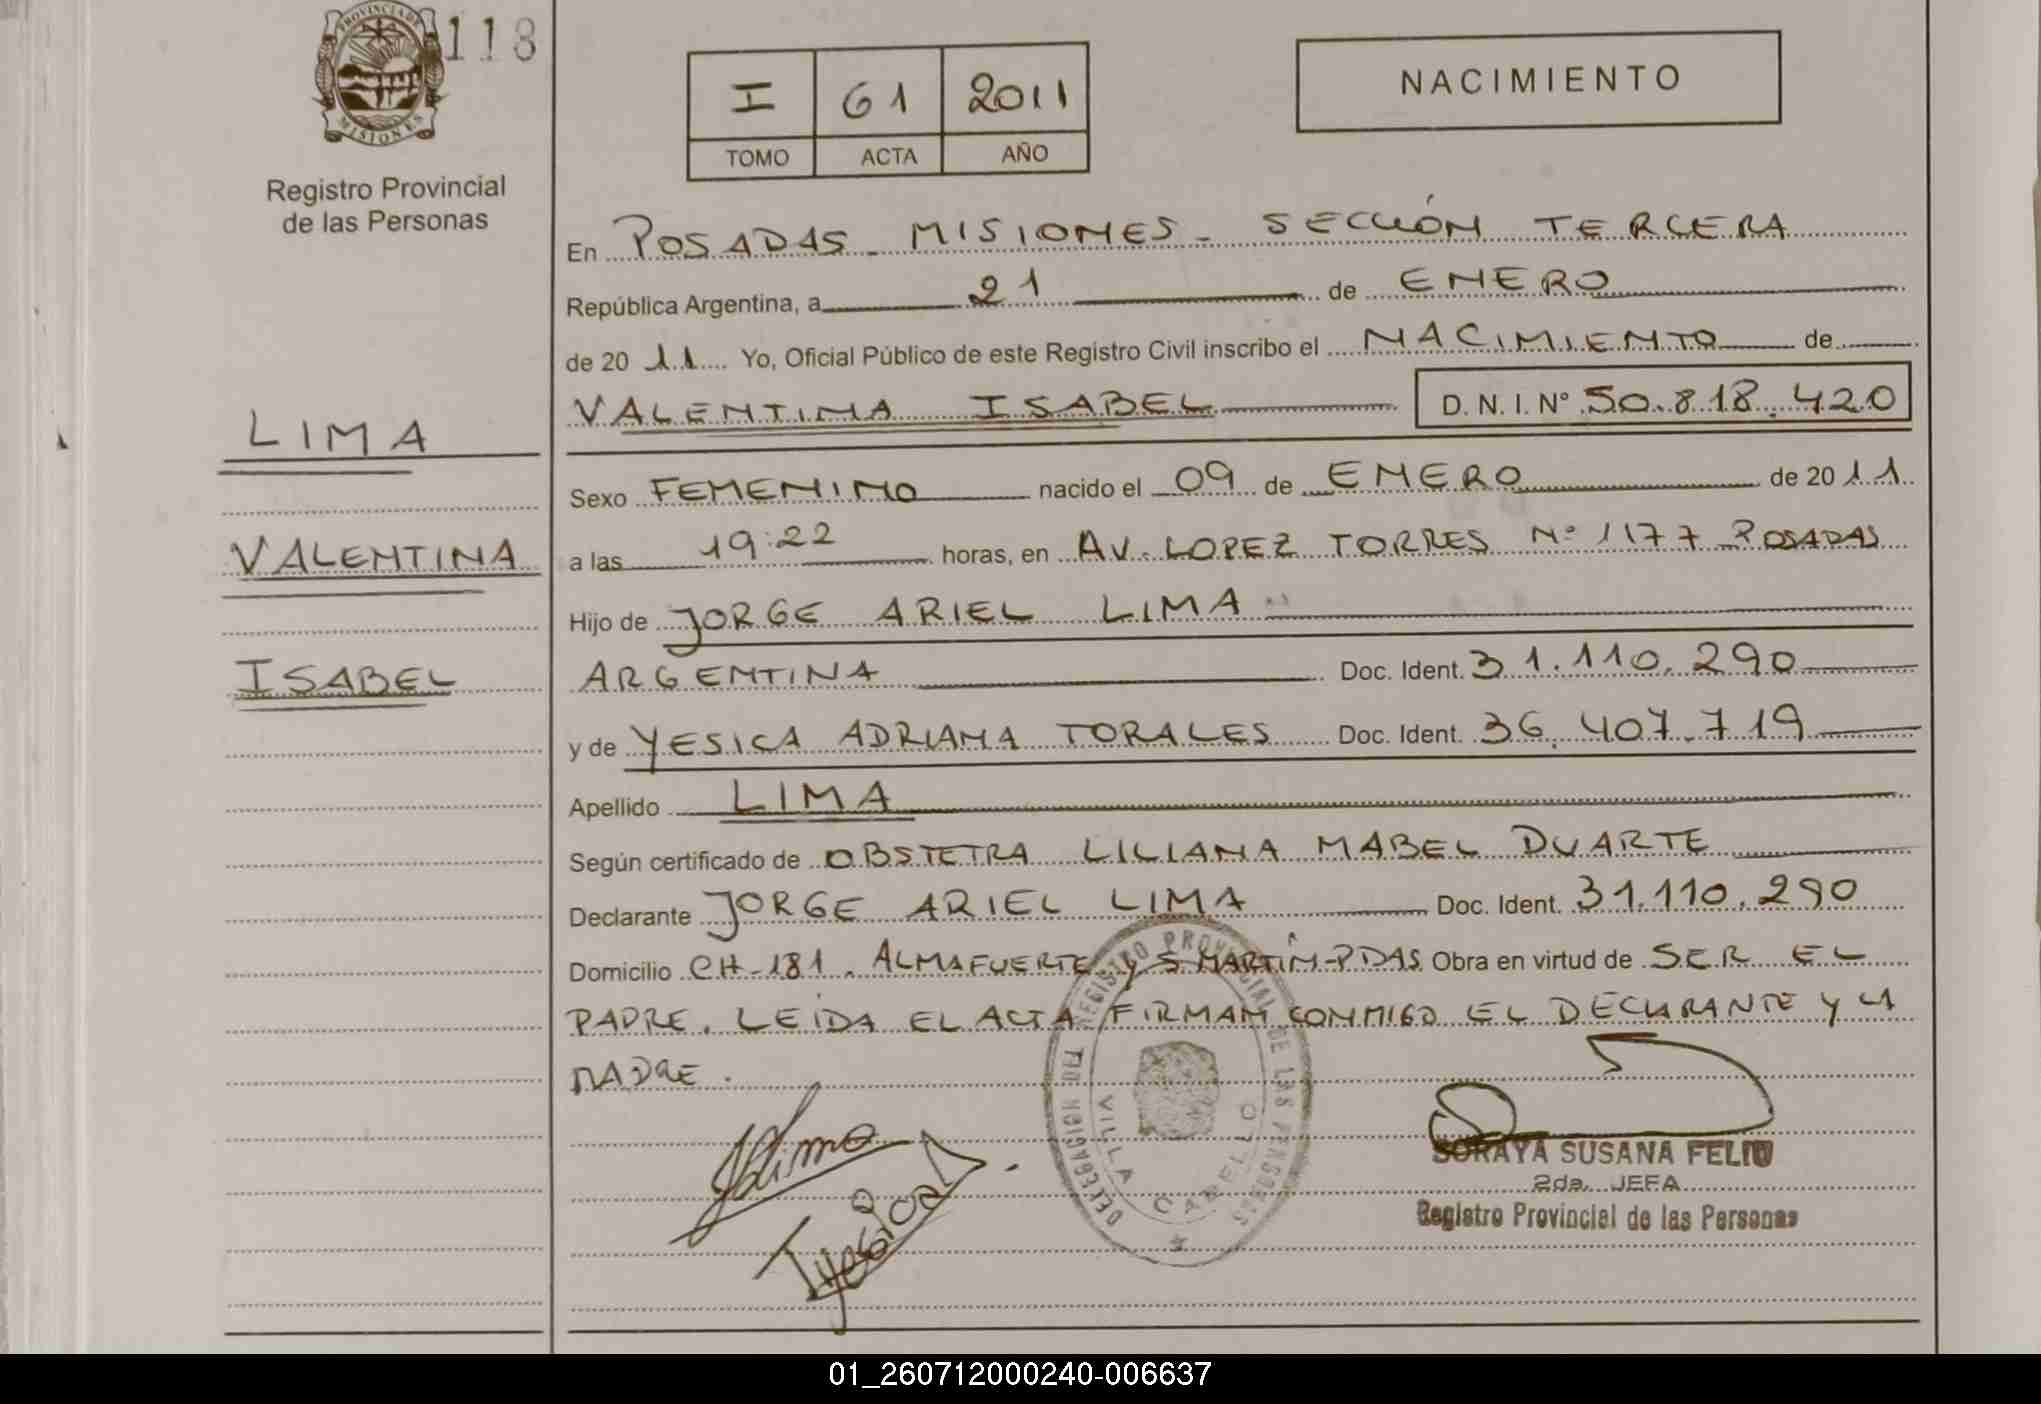 PROVINCIA DE
MISIONES
118
Registro Provincial
de las Personas
I 61 2011
TOMO ACTA AÑO
NACIMIENTO
En POSADAS - MISIONES - SECCIÓN TERCERA
República Argentina, a 21 de ENERO
de 20 11 Yo, Oficial Público de este Registro Civil inscribo el NACIMIENTO de
VALENTINA ISABEL D. N. I. Nº 50.818.420
LIMA
VALENTINA
ISABEL
Sexo FEMENINO nacido el 09 de ENERO de 20 11
a las 19:22 horas, en AV. LOPEZ TORRES Nº 1177 POSADAS
Hijo de JORGE ARIEL LIMA
ARGENTINA Doc. Ident. 31.110.290
y de YESICA ADRIANA TORALES Doc. Ident. 36.407.719
Apellido LIMA
Según certificado de OBSTETRA LILIANA MABEL DUARTE
Declarante JORGE ARIEL LIMA Doc. Ident. 31.110.290
Domicilio CH-181. ALMAFUERTE y S. MARTÍN-PDAS Obra en virtud de SER EL
PADRE. LEIDA EL ACTA FIRMAN CONMIGO EL DECLARANTE Y LA
MADRE.
DELEGACION DEL REGISTRO PROVINCIAL DE LAS PERSONAS
VILLA CABELLO
SORAYA SUSANA FELIU
2da. JEFA
Registro Provincial de las Personas
01_260712000240-006637